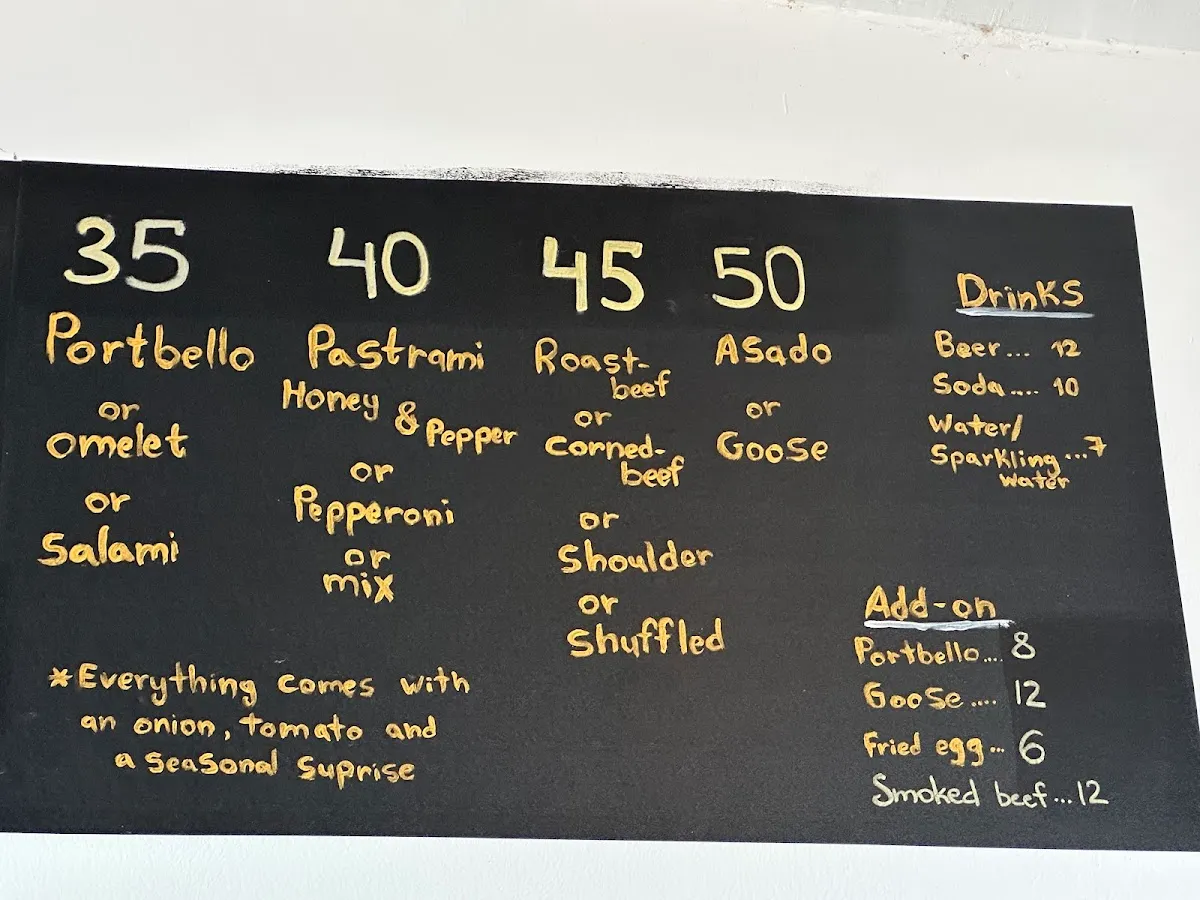 35
Portbello
or
omelet
or
Salami
40
Pastrami
Honey & Pepper
or
Pepperoni
or
mix
45
Roast-
beef
or
Corned-
beef
or
Shoulder
or
Shuffled
50
Asado
or
Goose
*Everything comes with
an onion, tomato and
a seasonal suprise
Drinks
Beer... 12
Soda.... 10
Water/
Sparkling ...7
water
Add-on
Portbello.... 8
Goose .... 12
Fried egg... 6
Smoked beef...12